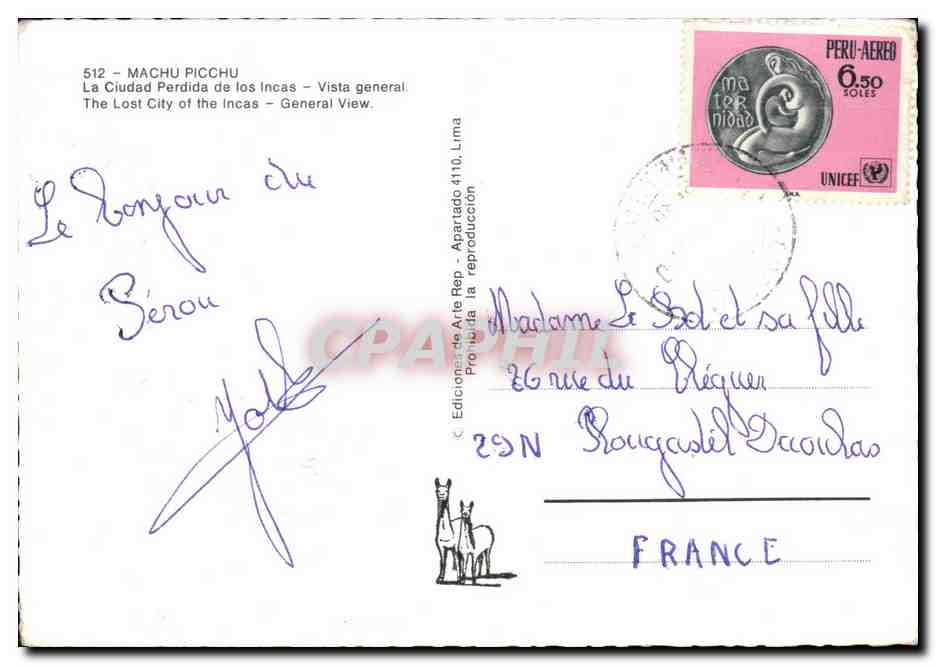 512 - MACHU PICCHU
La Ciudad Perdida de los Incas - Vista general.
The Lost City of the Incas - General View.
Le bonjour du
Pérou
© Ediciones de Arte Rep - Apartado 4110, Lima
Prohibida la reproducción
PERU-AEREO
6.50
SOLES
ma
ter
nidad
UNICEF
Madame Le Bot et sa fille
26 rue du Tréguer
29N Plougastel Daoulas
FRANCE
CPAPHIL